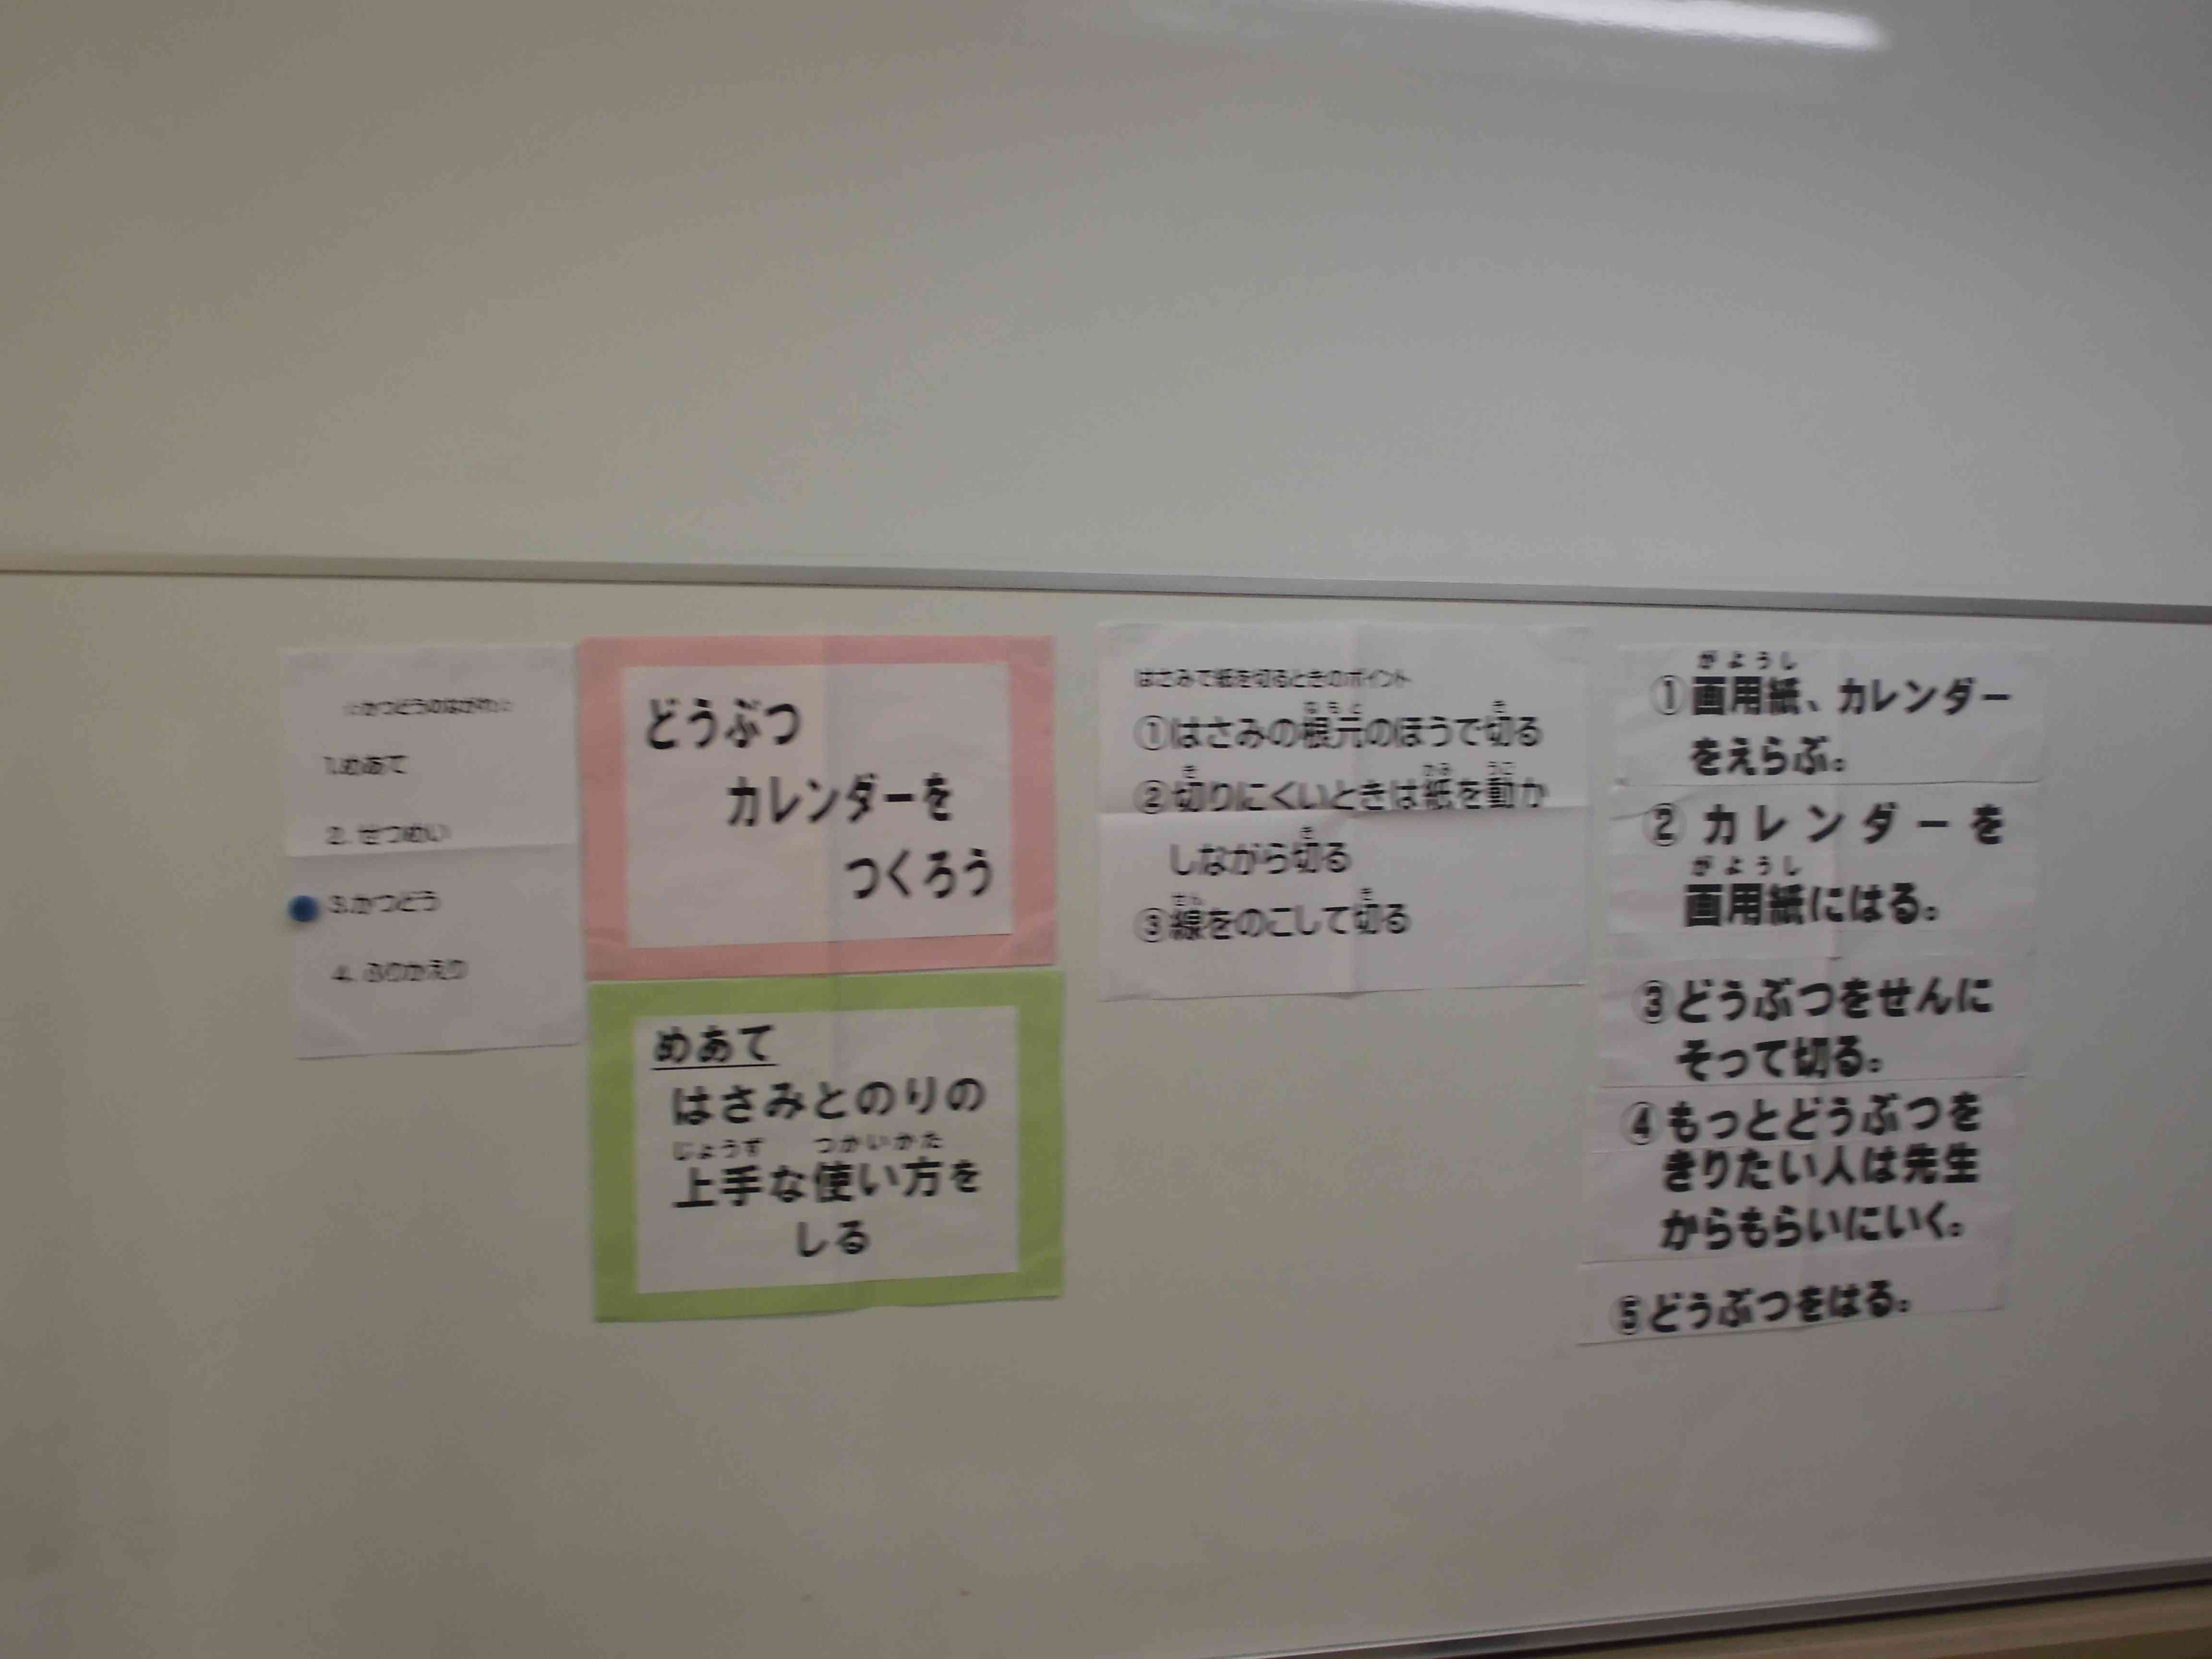 ☆かつどうのながれ☆
1.めあて
2. せつめい
3.かつどう
4. ふりかえり
どうぶつ
カレンダーを
つくろう
めあて
はさみとのりの
じょうず つかいかた
上手な使い方を
しる
はさみで紙を切るときのポイント
ねもと き
①はさみの根元のほうで切る
き かみ うご
②切りにくいときは紙を動か
き
しながら切る
せん き
③線をのこして切る
がようし
①画用紙、カレンダー
をえらぶ。
②カレンダーを
がようし
画用紙にはる。
③どうぶつをせんに
そって切る。
④もっとどうぶつを
きりたい人は先生
からもらいにいく。
⑤どうぶつをはる。